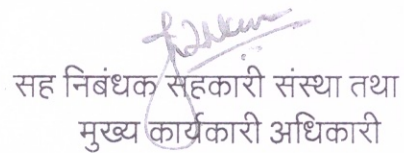 सह निबंधक सहकारी संस्था तथा
मुख्य कार्यकारी अधिकारी